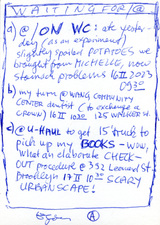 WAITING FOR @
a) @/ON WC: ate yester-
day (as an experiment)
slightly spoiled POTATOES we
brought from MICHELLE, now
stainer problems 16 II 2023
0930
b) my turn @ WANG COMMUNITY
CENTER dentist (to exchange a
CROWN) 16 II 1020 125 WALKER St.
c) @ U-HAUL to get 15' truck to
pick up my BOOKS - wow,
what an elaborate CHECK-
OUT procedure @ 352 Leonard St
Brooklyn 17 II 1030 SCARY
URBANSCAPE!
A